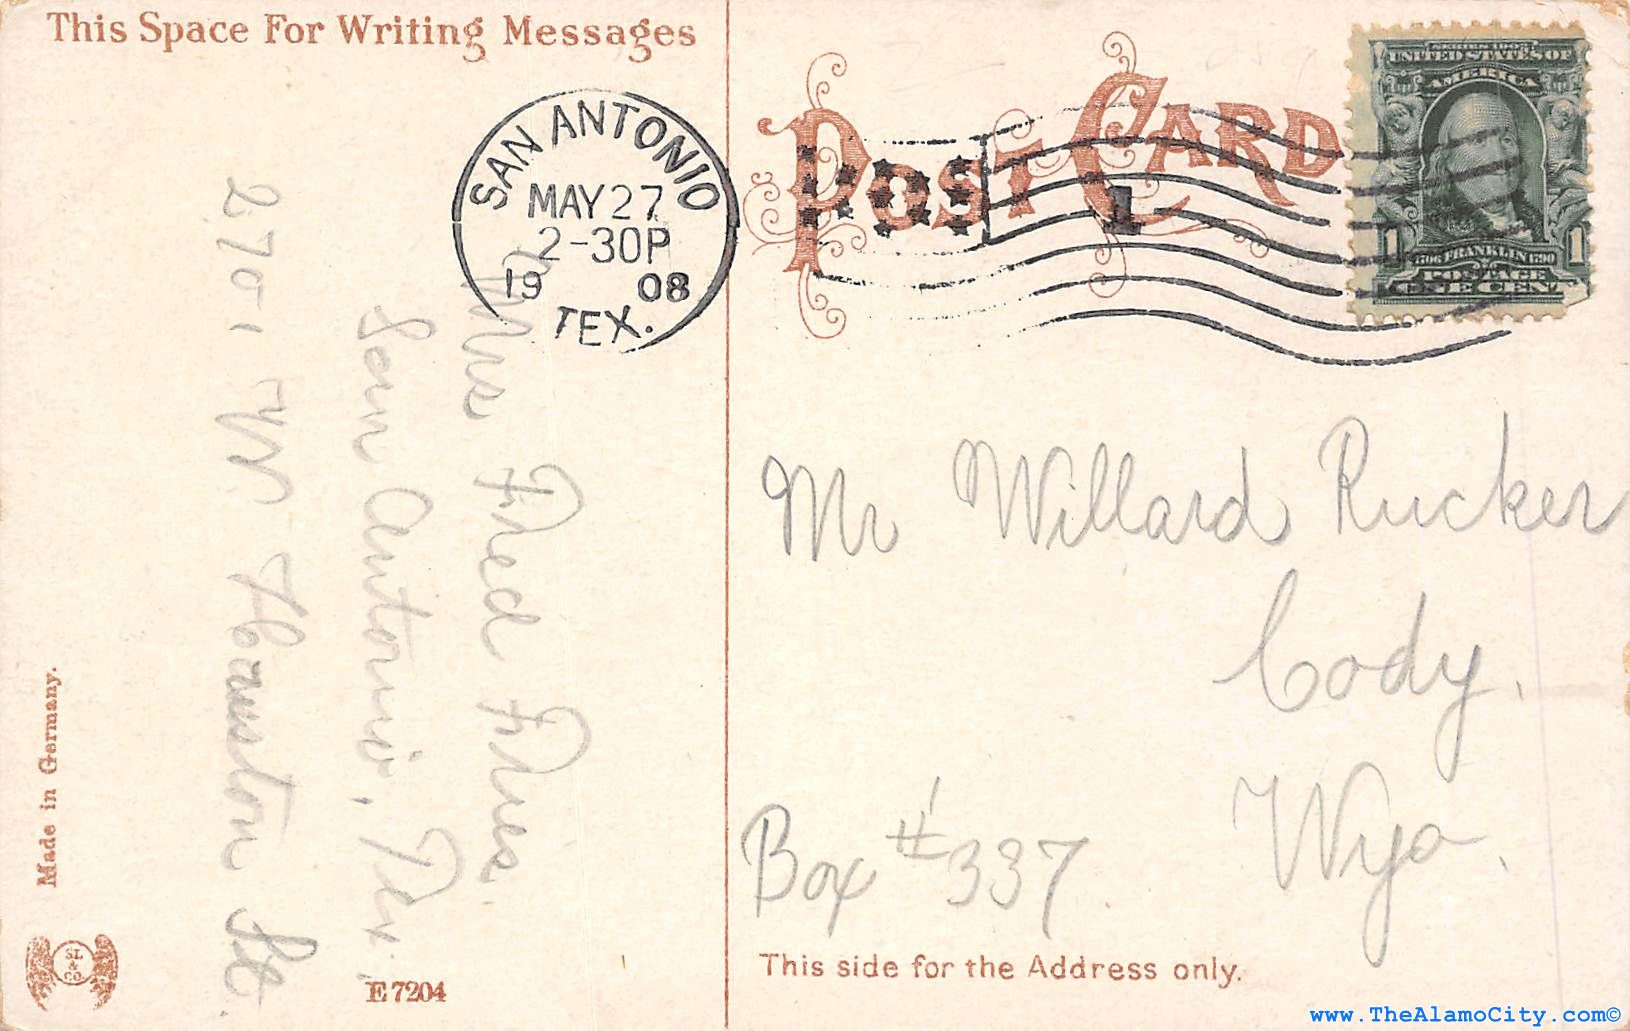 This Space For Writing Messages
POST CARD
SERIES 1902
UNITED STATES OF
AMERICA
1 1706 FRANKLIN 1790 1
POSTAGE
ONE CENT
SAN ANTONIO
MAY 27
2-30P
19 08
TEX.
1
Mrs Fred Fries
San Antonio, Tex.
2701 W Houston St.
Mr Willard Rucker
Cody.
Wyo.
Box #337
Made in Germany.
SL
&
CO
E 7204
This side for the Address only.
www.TheAlamoCity.com©